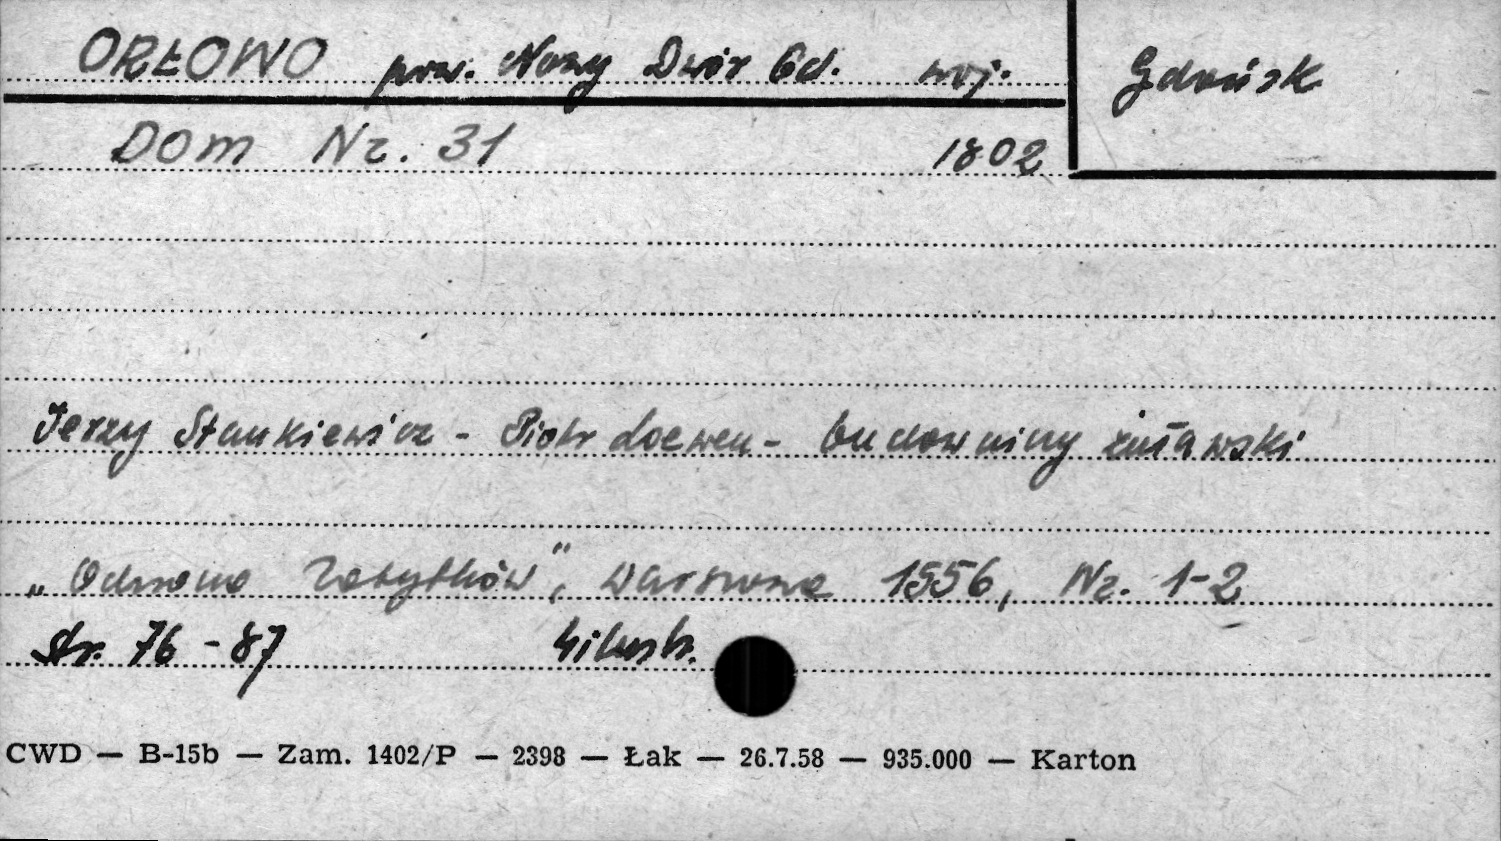 ORŁOWO pow. Nowy Dwór Gd. woj. Gdańsk
Dom Nr. 31 1802
Jerzy Stankiewicz - Piotr Loewen - budowniczy żuławski
„Ochrona Zabytków", Warszawa 1956, Nr. 1-2
Str. 76 - 87
CWD — B-15b — Zam. 1402/P — 2398 — Łak — 26.7.58 — 935.000 — Karton